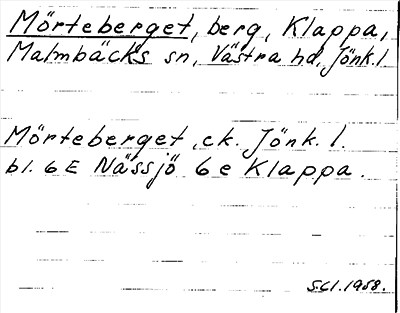 Mörteberget, berg, Klappa,
Malmbäcks sn, Västra hd, Jönk. l
Mörteberget, ek. Jönk. l.
bl. 6E Nässjö 6e Klappa.
S.Cl. 1958.